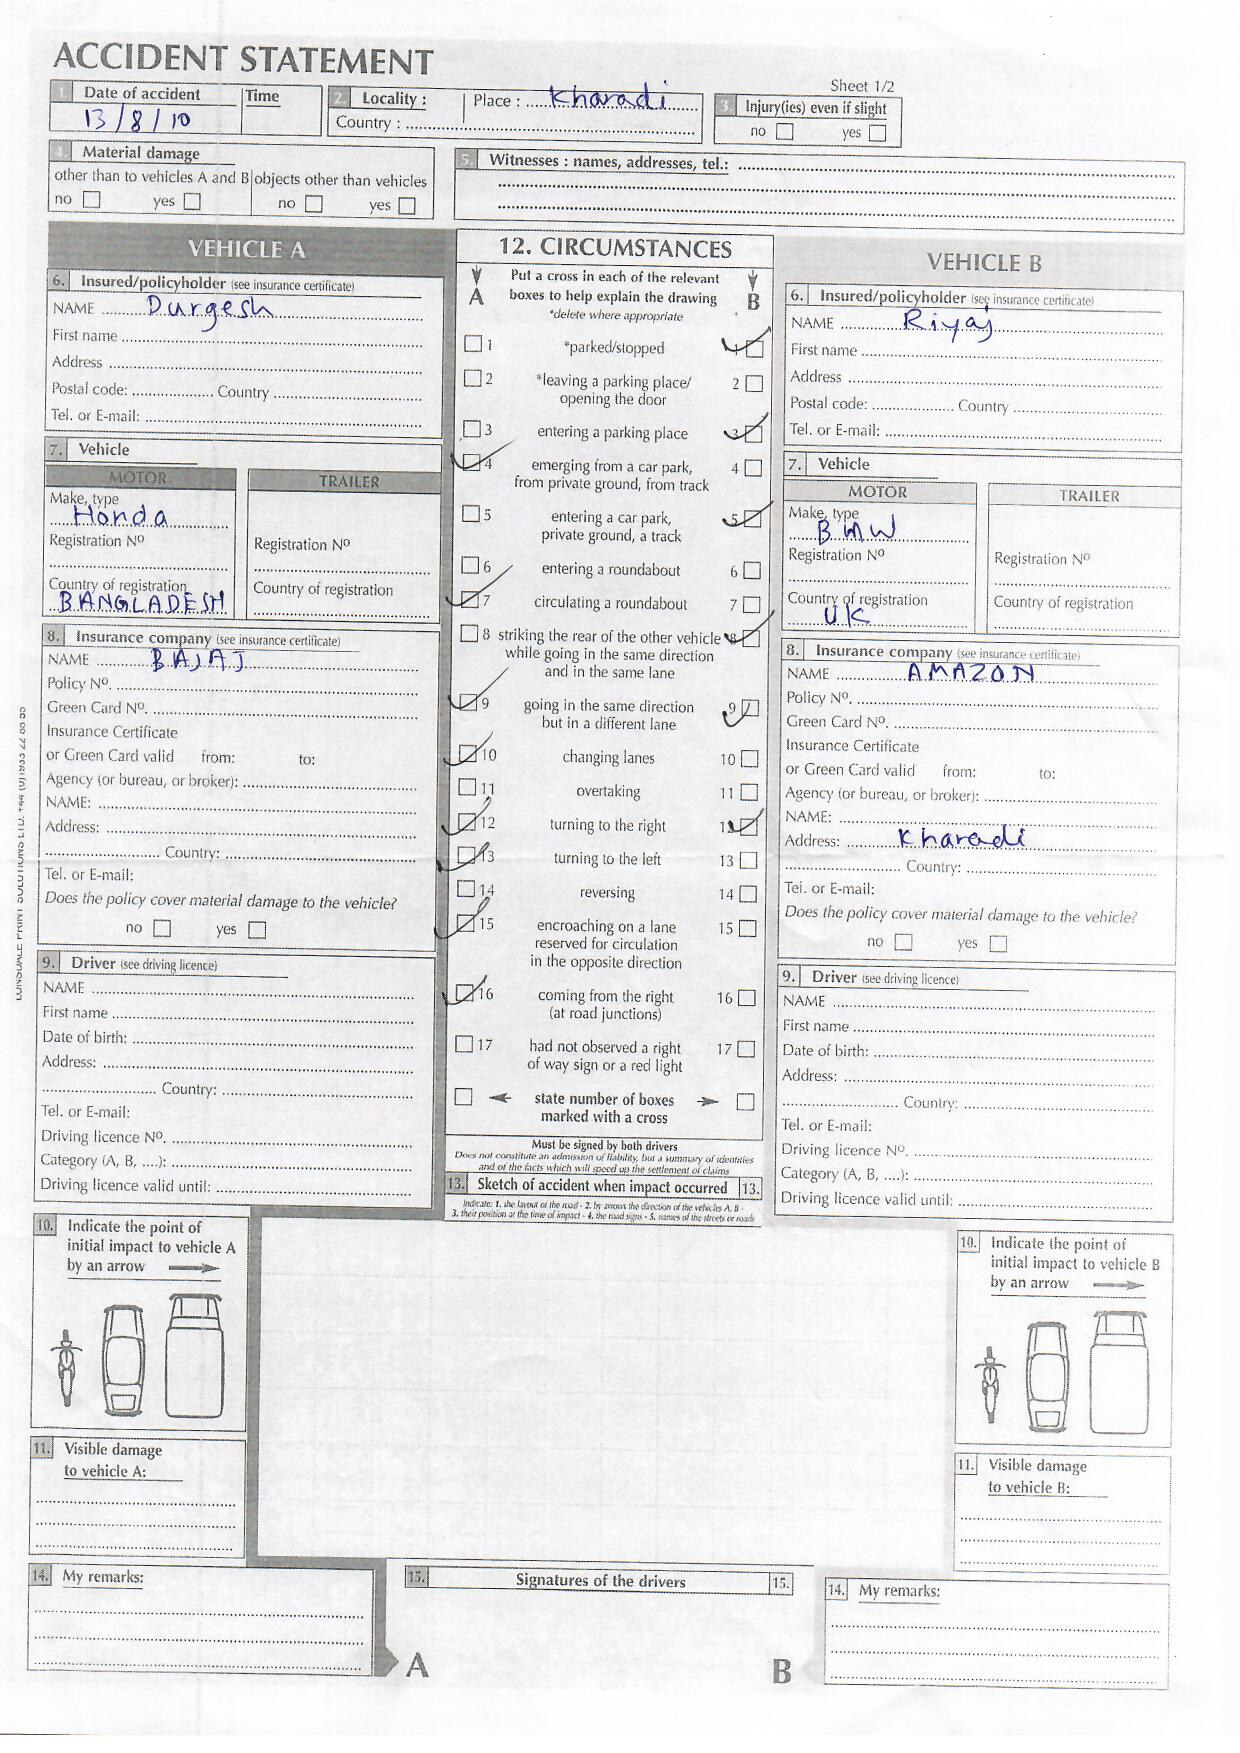 ACCIDENT STATEMENT
Sheet 1/2
1. Date of accident
13/8/10
Time
2. Locality :
Place : Kharadi
Country :
3. Injury(ies) even if slight
no yes
4. Material damage
other than to vehicles A and B objects other than vehicles
no yes no yes
5. Witnesses : names, addresses, tel.:
VEHICLE A
6. Insured/policyholder (see insurance certificate)
NAME Durgesh
First name
Address
Postal code: Country
Tel. or E-mail:
7. Vehicle
MOTOR
Make, type
Honda
Registration Nº
Country of registration
BANGLADESH
TRAILER
Registration Nº
Country of registration
8. Insurance company (see insurance certificate)
NAME BAJAJ
Policy Nº.
Green Card Nº.
Insurance Certificate
or Green Card valid from: to:
Agency (or bureau, or broker):
NAME:
Address:
Country:
Tel. or E-mail:
Does the policy cover material damage to the vehicle?
no yes
9. Driver (see driving licence)
NAME
First name
Date of birth:
Address:
Country:
Tel. or E-mail:
Driving licence Nº.
Category (A, B, ....):
Driving licence valid until:
10. Indicate the point of
initial impact to vehicle A
by an arrow
11. Visible damage
to vehicle A:
14. My remarks:
12. CIRCUMSTANCES
Put a cross in each of the relevant
A boxes to help explain the drawing B
*delete where appropriate
1 *parked/stopped 1
2 *leaving a parking place/ 2
opening the door
3 entering a parking place 3
4 emerging from a car park, 4
from private ground, from track
5 entering a car park, 5
private ground, a track
6 entering a roundabout 6
7 circulating a roundabout 7
8 striking the rear of the other vehicle 8
while going in the same direction
and in the same lane
9 going in the same direction 9
but in a different lane
10 changing lanes 10
11 overtaking 11
12 turning to the right 12
13 turning to the left 13
14 reversing 14
15 encroaching on a lane 15
reserved for circulation
in the opposite direction
16 coming from the right 16
(at road junctions)
17 had not observed a right 17
of way sign or a red light
state number of boxes
marked with a cross
Must be signed by both drivers
Does not constitute an admission of liability, but a summary of identities
and of the facts which will speed up the settlement of claims
13. Sketch of accident when impact occurred 13.
Indicate: 1. the layout of the road - 2. by arrows the direction of the vehicles A, B -
3. their position at the time of impact - 4. the road signs - 5. names of the streets or roads
15. Signatures of the drivers 15.
A B
VEHICLE B
6. Insured/policyholder (see insurance certificate)
NAME Riyaj
First name
Address
Postal code: Country
Tel. or E-mail:
7. Vehicle
MOTOR
Make, type
BMW
Registration Nº
Country of registration
UK
TRAILER
Registration Nº
Country of registration
8. Insurance company (see insurance certificate)
NAME AMAZON
Policy Nº.
Green Card Nº.
Insurance Certificate
or Green Card valid from: to:
Agency (or bureau, or broker):
NAME:
Address: Kharadi
Country:
Tel. or E-mail:
Does the policy cover material damage to the vehicle?
no yes
9. Driver (see driving licence)
NAME
First name
Date of birth:
Address:
Country:
Tel. or E-mail:
Driving licence Nº.
Category (A, B, ....):
Driving licence valid until:
10. Indicate the point of
initial impact to vehicle B
by an arrow
11. Visible damage
to vehicle B:
14. My remarks: